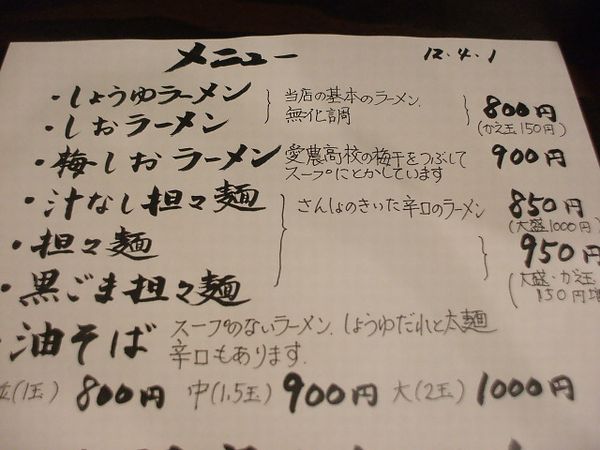 メニュー 12.4.1
・しょうゆラーメン 当店の基本のラーメン. 800円
・しおラーメン 無化調 (かえ玉150円)
・梅しおラーメン 愛農高校の梅干をつぶして 900円
スープにとかしています
・汁なし担々麺 さんしょのきいた辛口のラーメン 850円
(大盛1000円)
・担々麺 950円
・黒ごま担々麺 (大盛・かえ玉
150円増
・油そば スープのないラーメン.しょうゆだれと太麺
辛口もあります.
並(1玉) 800円 中(1.5玉) 900円 大(2玉) 1000円